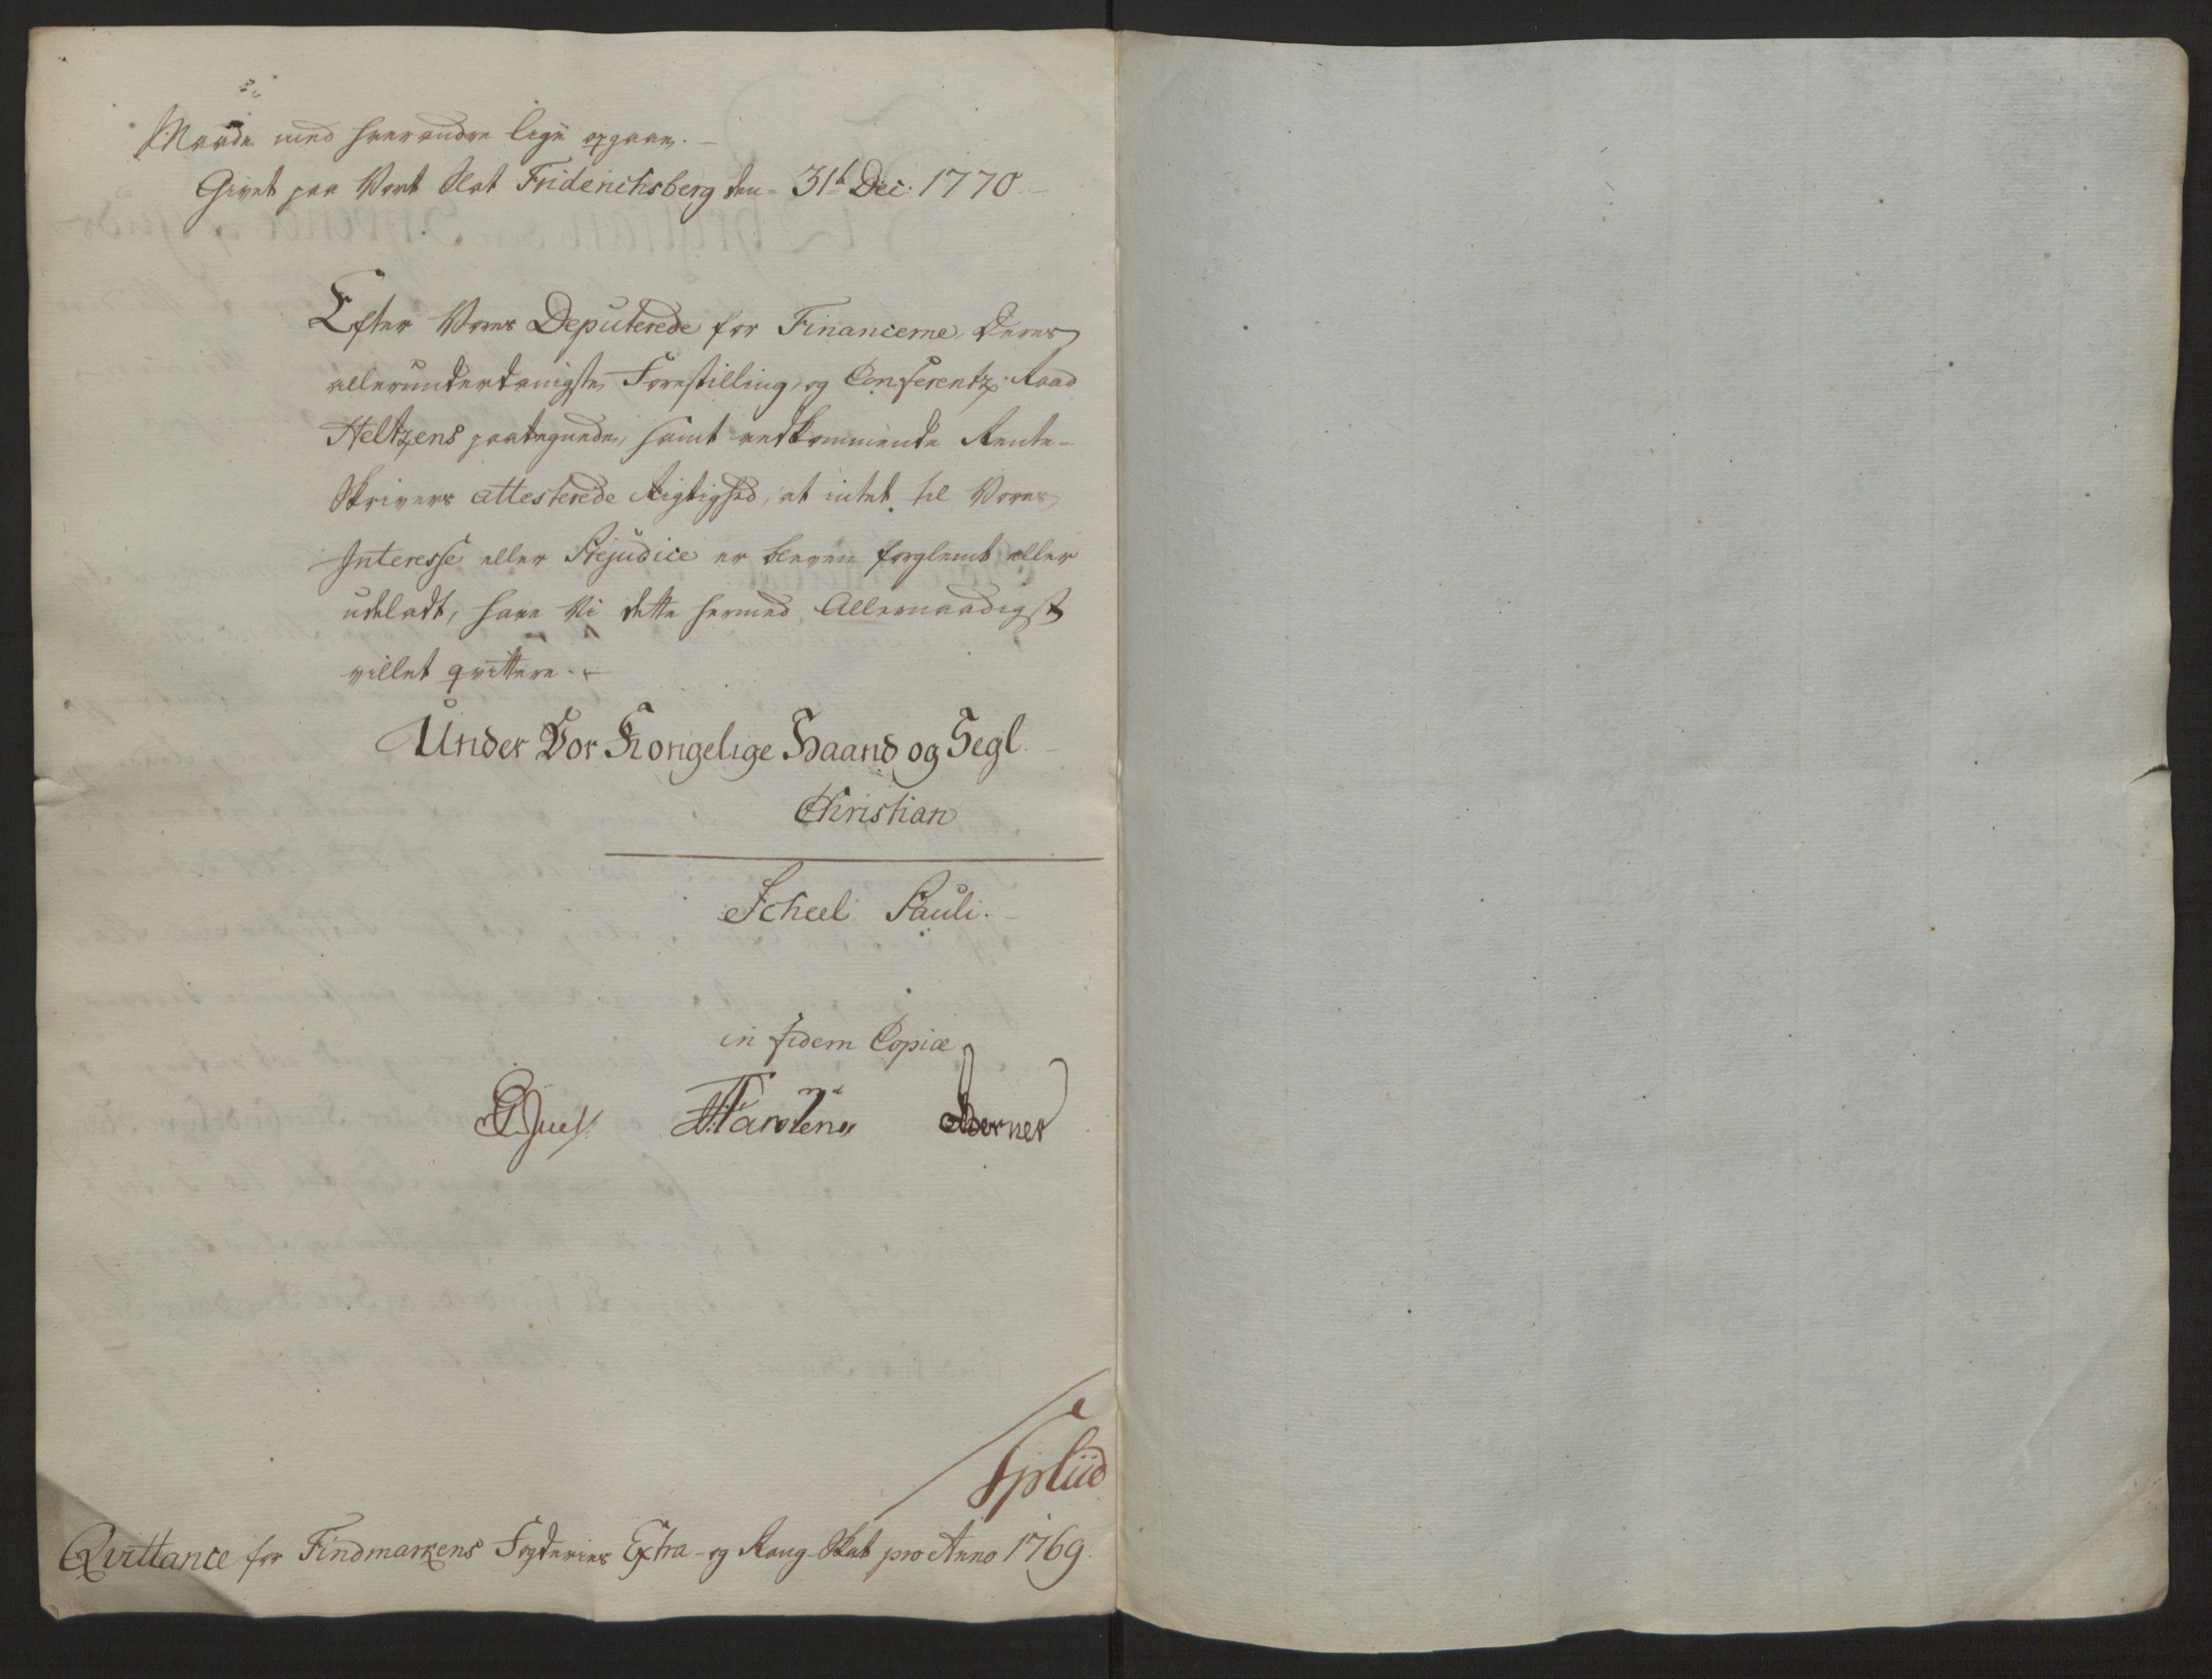 Maade med hverandre lige opgaae.
Givet paa Vort Slot Friderichsberg den 31t Dec: 1770.
Efter Vores Deputerede for Financerne, Deres
allerunderdanigste Forestilling, og Conferentz-Raad
Heltzens paategnede, samt vedkommende Rente-
Skrivers attesterede Rigtighed, at intet til Vores
Interesse eller Prejudice er bleven forglemt eller
udeladt, have Vi dette hermed Allernaadigst
villet qvittere.
Under Vor Kongelige Haand og Segl.
Christian
Scheel Pauli.
in fidem Copiæ
Berner
Qvittance for Findmarkens Fogderies Extra- og Rang-Skat pro Anno 1769.